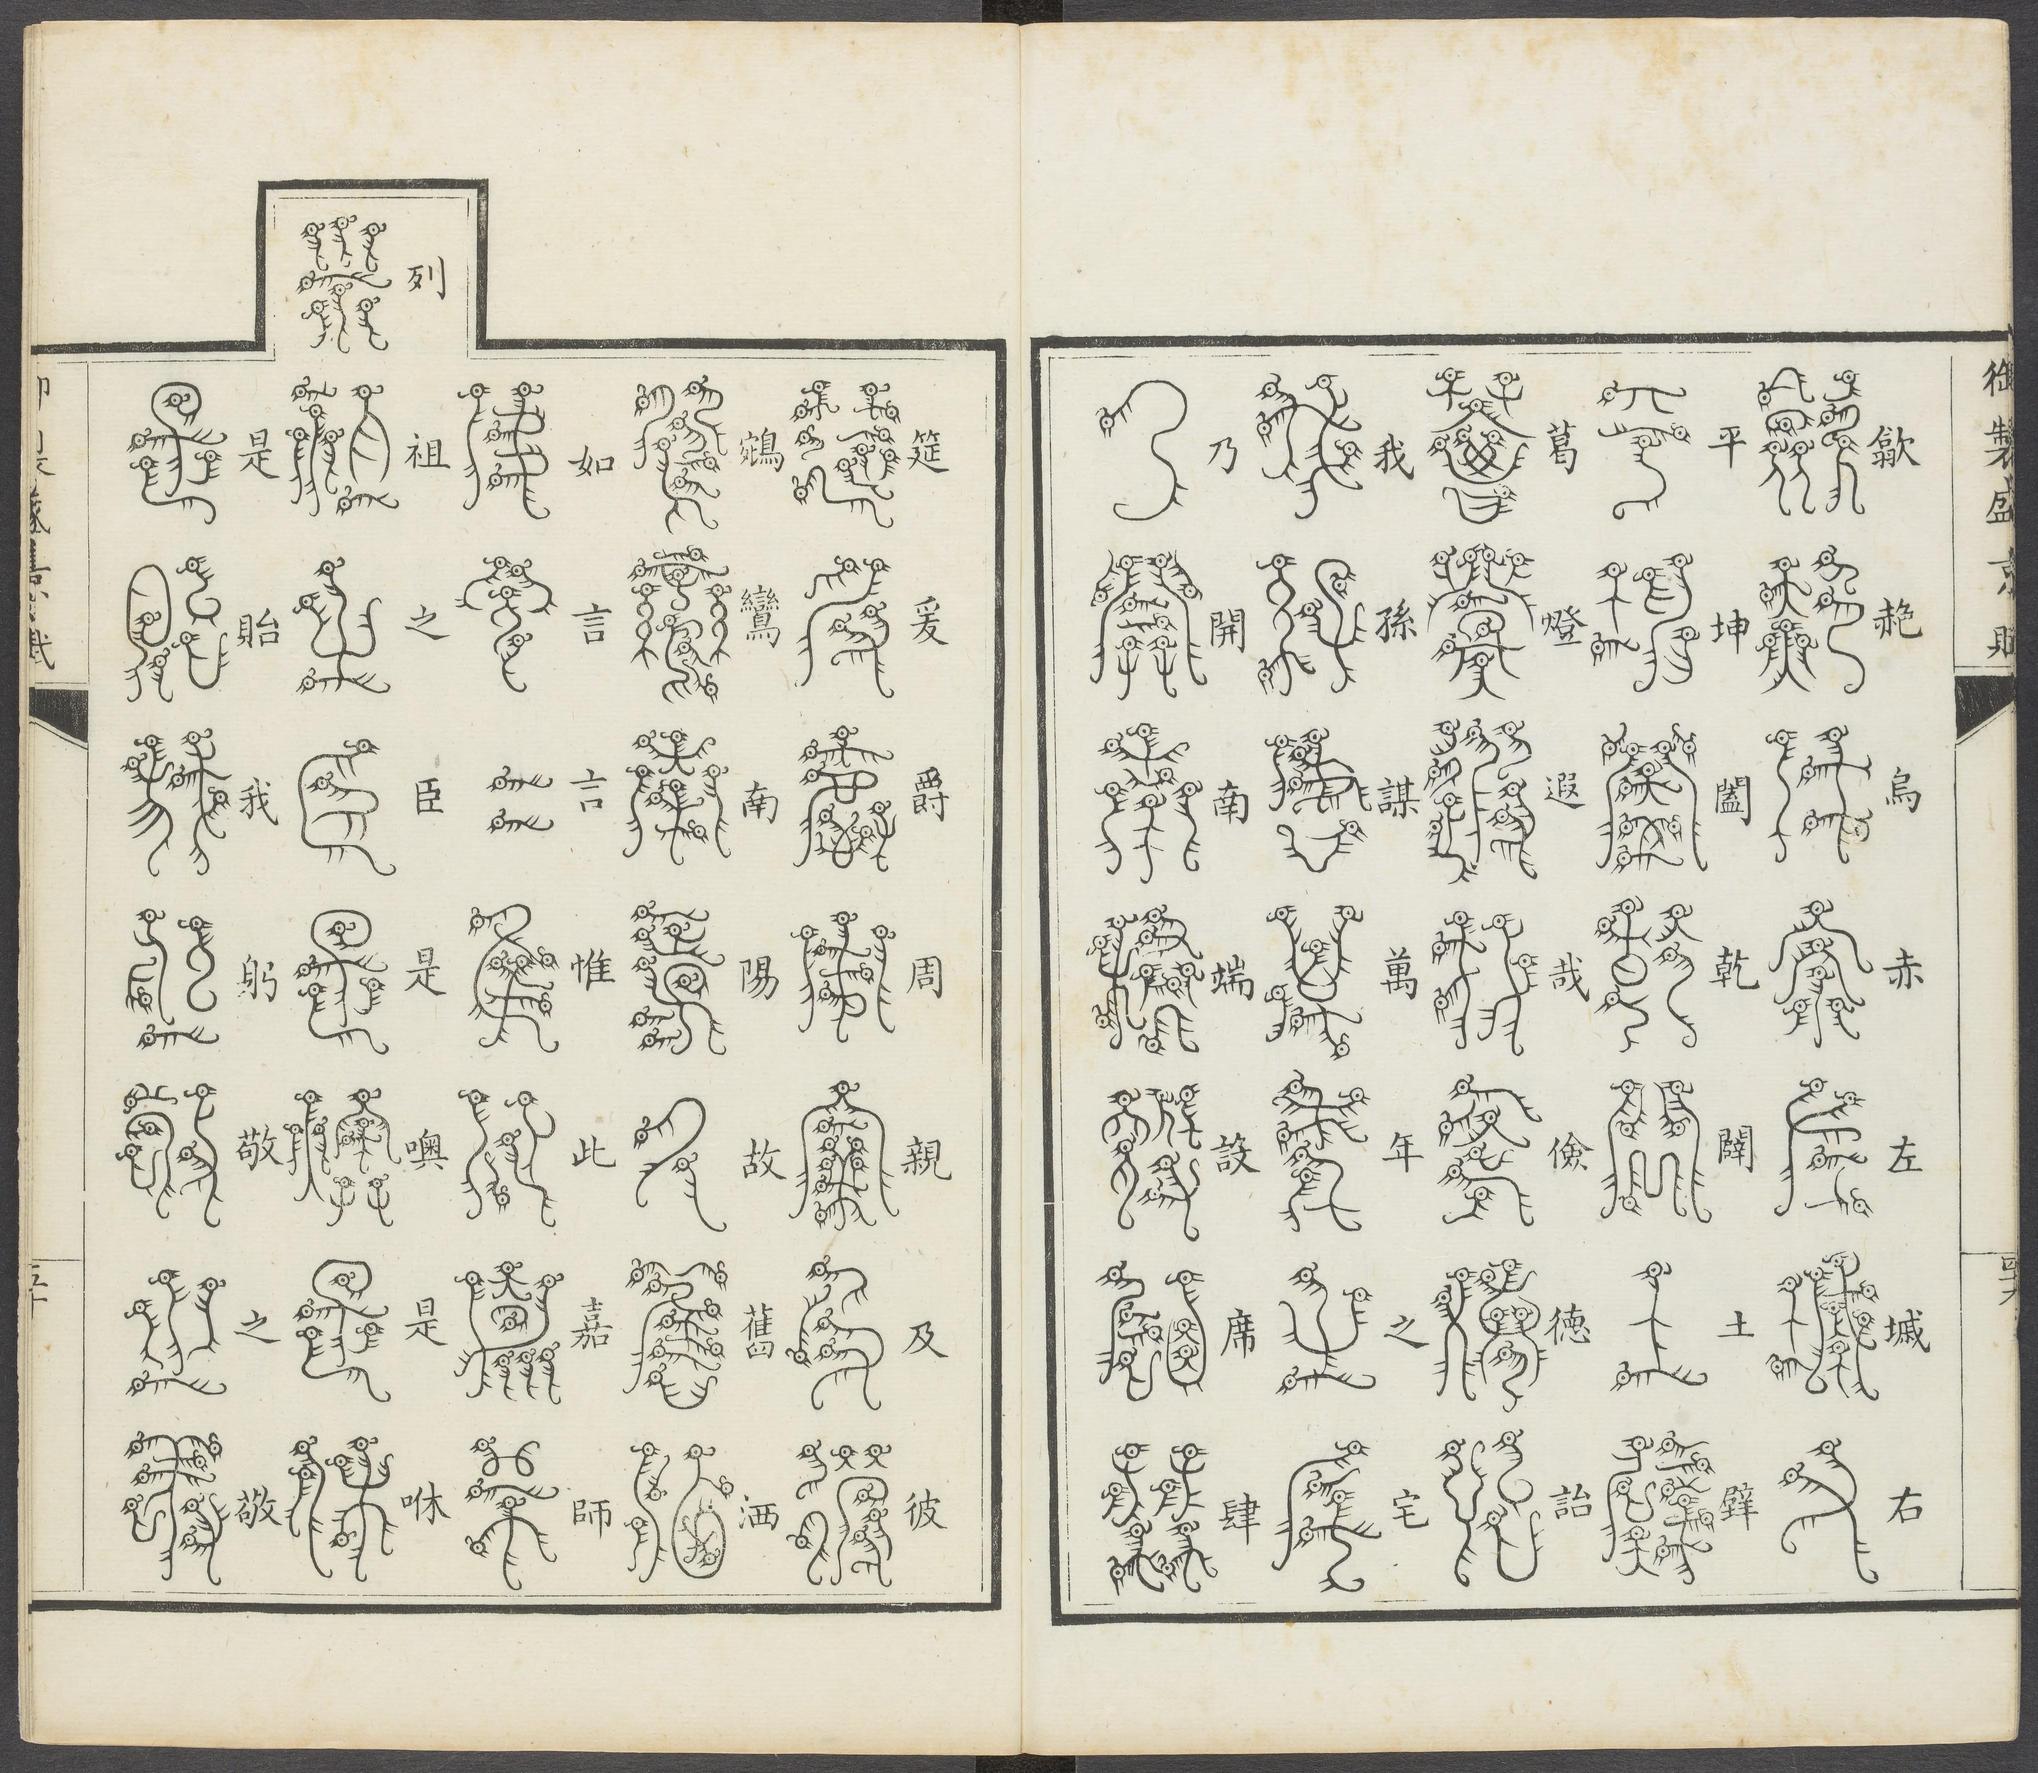 御製盛京賦
歙赩烏赤左墄右
平坤闔乾闢土壁
葛燈遐哉儉德詒
我孫謀萬年之宅
乃開南端設席肆
筵爰爵周親及彼
鵷鸞南陽故舊洒
如言言惟此嘉師
列祖之臣是噢是咻
是貽我躬敬之敬
御製盛京賦
五十